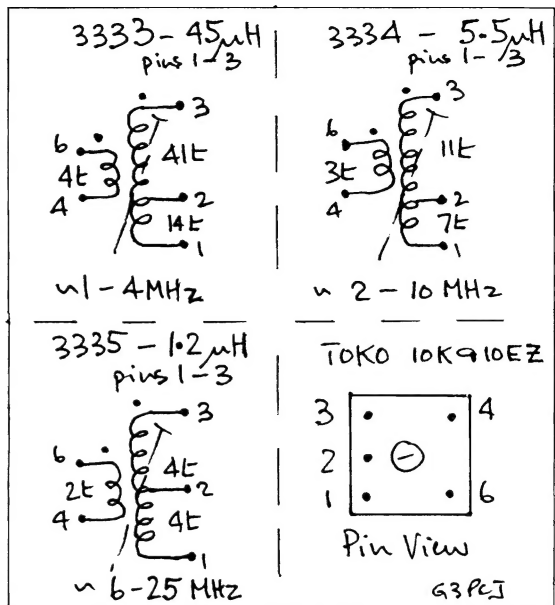 3333 - 45μH
pins 1-3
3
6
4t
41t
4
2
14t
1
~1-4MHz
3334 - 5.5μH
pins 1-3
3
6
3t
11t
4
2
7t
1
~ 2-10 MHz
3335 - 1.2μH
pins 1-3
3
6
2t
4t
2
4
4t
1
~ 6-25 MHz
TOKO 10K & 10EZ
3
4
2
1
6
Pin View
G3PCJ